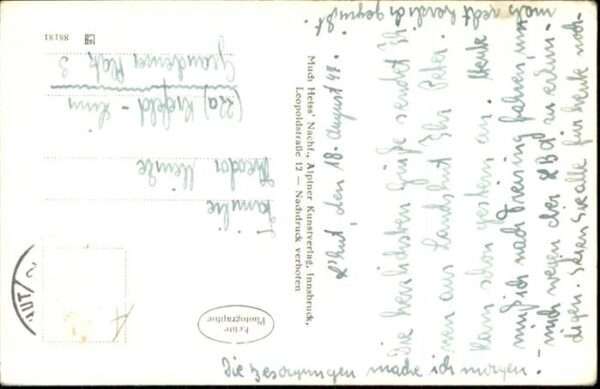 L'hut, den 18. August 49.
Die herzlichsten Grüße sendet Ih-
nen aus Landshut Ihr Peter.
Kam schon gestern an. Heute
muß ich nach Freising fahren, um
mich wegen der LBA zu erkun-
digen. Seien Sie alle für heute noch-
mals recht herzlich gegrüßt.
Die Besorgungen mache ich morgen.-
Much Heiss' Nachf., Alpiner Kunstverlag, Innsbruck,
Leopoldstraße 12 — Nachdruck verboten
Echte
Photographie
Familie
Theodor
(22a) Krefeld - Linn
Platz 3
88181